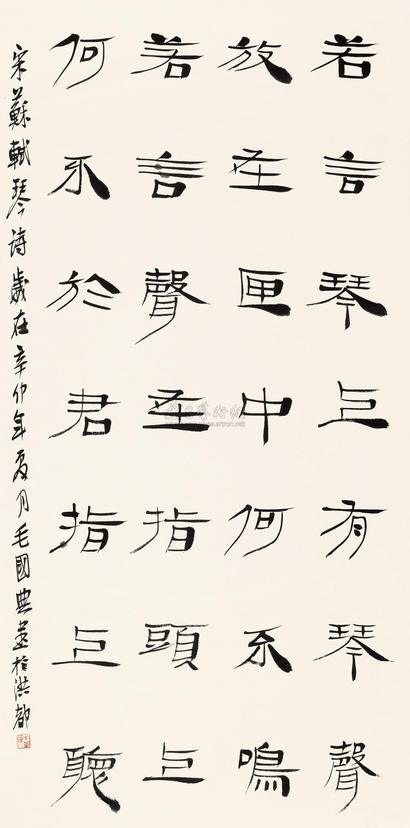 若言琴上有琴聲
放在匣中何不鳴
若言聲在指頭上
何不於君指上聽
宋蘇軾琴詩歲在辛卯年夏月毛國典書於洪都